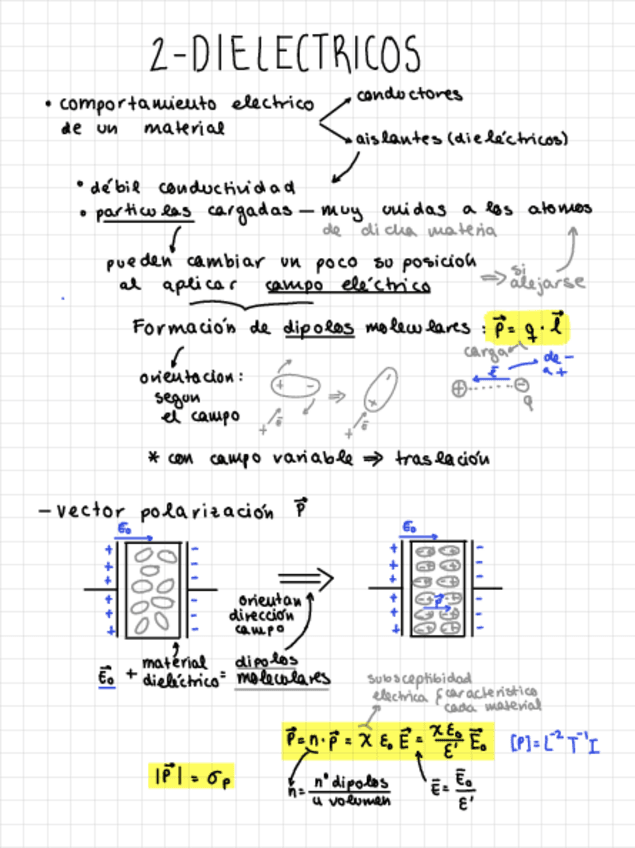 2-DIELECTRICOS
• comportamiento electrico
de un material
conductores
aislantes (dieléctricos)
• débil conductividad
• particulas cargadas — muy unidas a los atomos
de dicha materia
pueden cambiar un poco su posición
al aplicar campo eléctrico
⇒ si
alejarse
Formación de dipolos moleculares : p⃗ = q · l⃗
carga
de -
a +
l⃗
+ - q
orientacion:
segun
el campo
+ -
⇒
+ -
+ e⃗
+ e⃗
* con campo variable ⇒ traslación
- vector polarización P⃗
E₀
E₀
+ + + + + +
- - - - - -
⇒
+ + + + + +
- - - - - -
P⃗
orientan
dirección
campo
E⃗₀ + material
dieléctrico = dipolos
moleculares
subsceptibidad
electrica { característico
cada material
P⃗ = n · p⃗ = χ ε₀ E⃗ = χε₀/ε' E⃗₀
[P] = L⁻² T⁻¹ I
|P⃗| = σp
n = nº dipolos / u volumen
E⃗ = E⃗₀/ε'